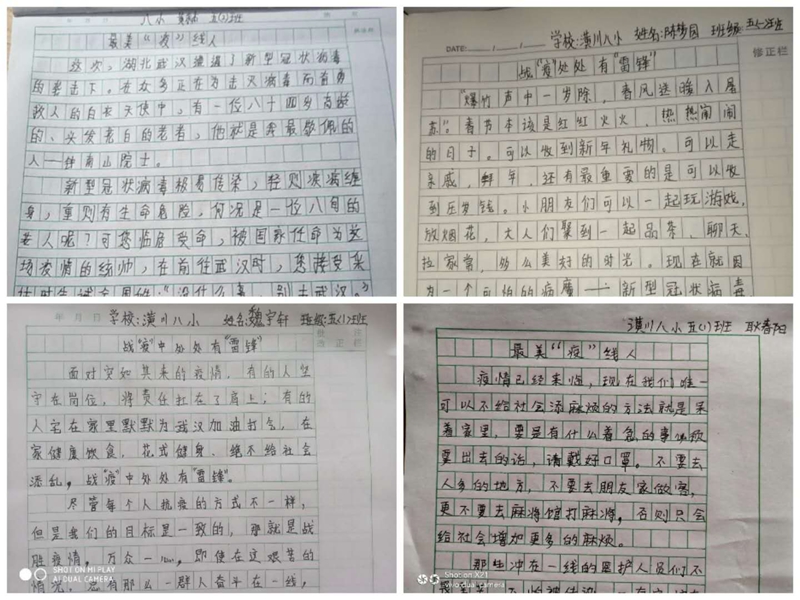 八小 五(1)班
最美“疫”线人
这次,湖北武汉遭遇了新型冠状病毒
的袭击下。在众多正在为击灭病毒而前勇
敌人的白衣天使中,有一位八十四岁高龄
的、头发花白的老者,他就是我最敬佩的
人——钟南山院士。
新型冠状病毒极易传染,轻则疾病缠
身,重则有生命危险,何况是一位八旬的
老人呢?可您临危受命,被国家任命为这
场疫情的统帅,在前往武汉时,您接受采
访时坚诚
“没什么事,别去武汉。”
DATE
学校:潢川八小 姓名:陈梦园 班级:五(一)班
修正栏
战“疫”处处有“雷锋”
“爆竹声中一岁除,春风送暖入屠
苏”。春节本该是红红火火,热热闹闹
的日子。可以收到新年礼物。可以走
亲戚,拜年,还有最重要的是可以收
到压岁钱。小朋友们可以一起玩游戏,
放烟花,大人们聚到一起品茶、聊天、
拉家常,多么美好的时光。现在就因
为一个可怕的病魔——新型冠状病毒
年 月 日
学校:潢川八小 姓名:魏宇轩 班级:五(1)班
批注
修正栏
战“疫”中处处有“雷锋”
面对突如其来的疫情,有的人坚
守在岗位,将责任扛在了肩上;有的
人宅在家里默默为武汉加油打气,在
家健康饮食,花式健身,绝不给社会
添乱。战“疫”中处处有“雷锋”。
尽管每个人抗疫的方式不一样,
但是我们的目标是一致的,那就是战
胜疫情。万众一心,即使在这艰苦的
情况,总有那么一群人奋斗在一线,
SHOT ON MI PLAY
AI DUAL CAMERA
潢川八小五(1)班 耿春阳
最美“疫”线人
疫情已经来临,现在我们唯一
可以不给社会添麻烦的方法就是呆
着家里,要是有什么着急的事情须
要出去的话,请戴好口罩。不要去
人多的地方,不要去朋友家做客,
更不要去麻将馆打麻将,否则只会
给社会增加更多的麻烦。
那些冲在一线的医护人员们不
Shot on X21
vivo dual camera